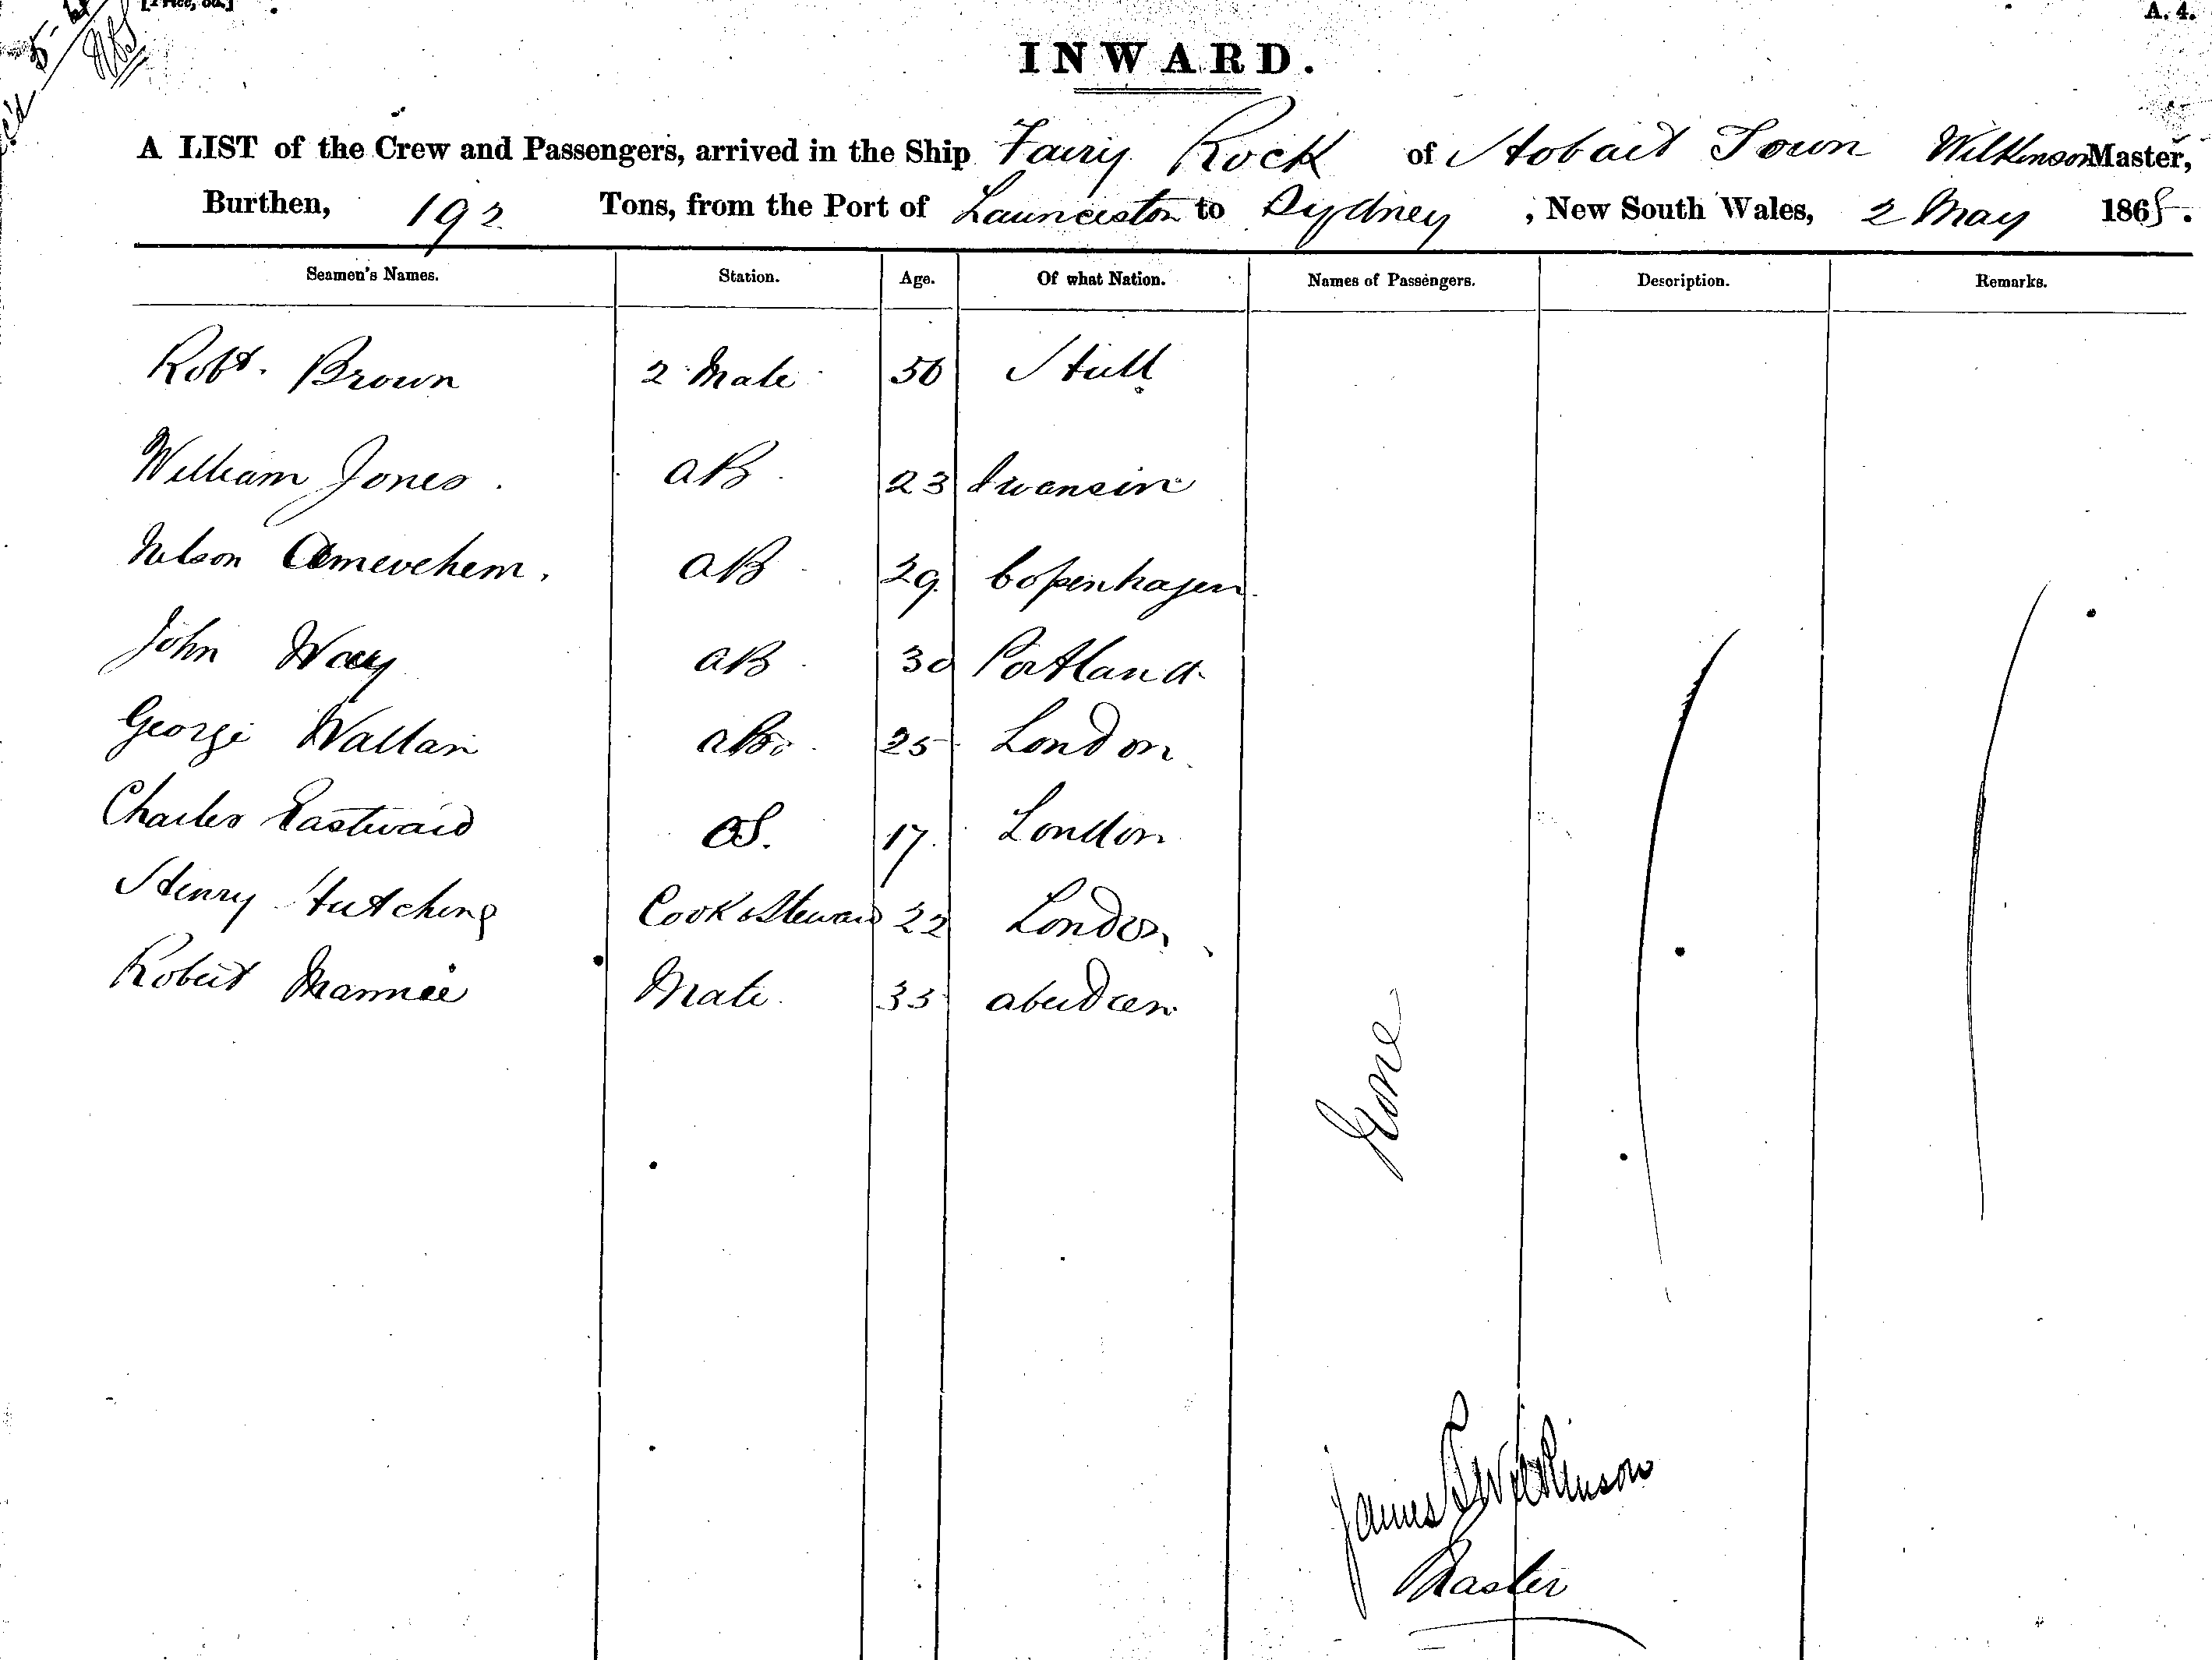 A. 4.
INWARD.
A LIST of the Crew and Passengers, arrived in the Ship Fairy Rock of Hobart Town Wilkinson Master,
Burthen, 192 Tons, from the Port of Launceston to Sydney, New South Wales, 2 May 1865.
Seamen's Names. Station. Age. Of what Nation. Names of Passengers. Description. Remarks.
Robt. Brown 2 Mate 56 Hull
William Jones. AB 23
Nelson AB 29 Copenhagen
John Way AB 30 Portland
George AB 25 London
Charles Eastward OS. 17 London
Henry Hutching Cook & Steward 22 London
Robert Mate 33 Aberdeen
James Wilkinson
Master